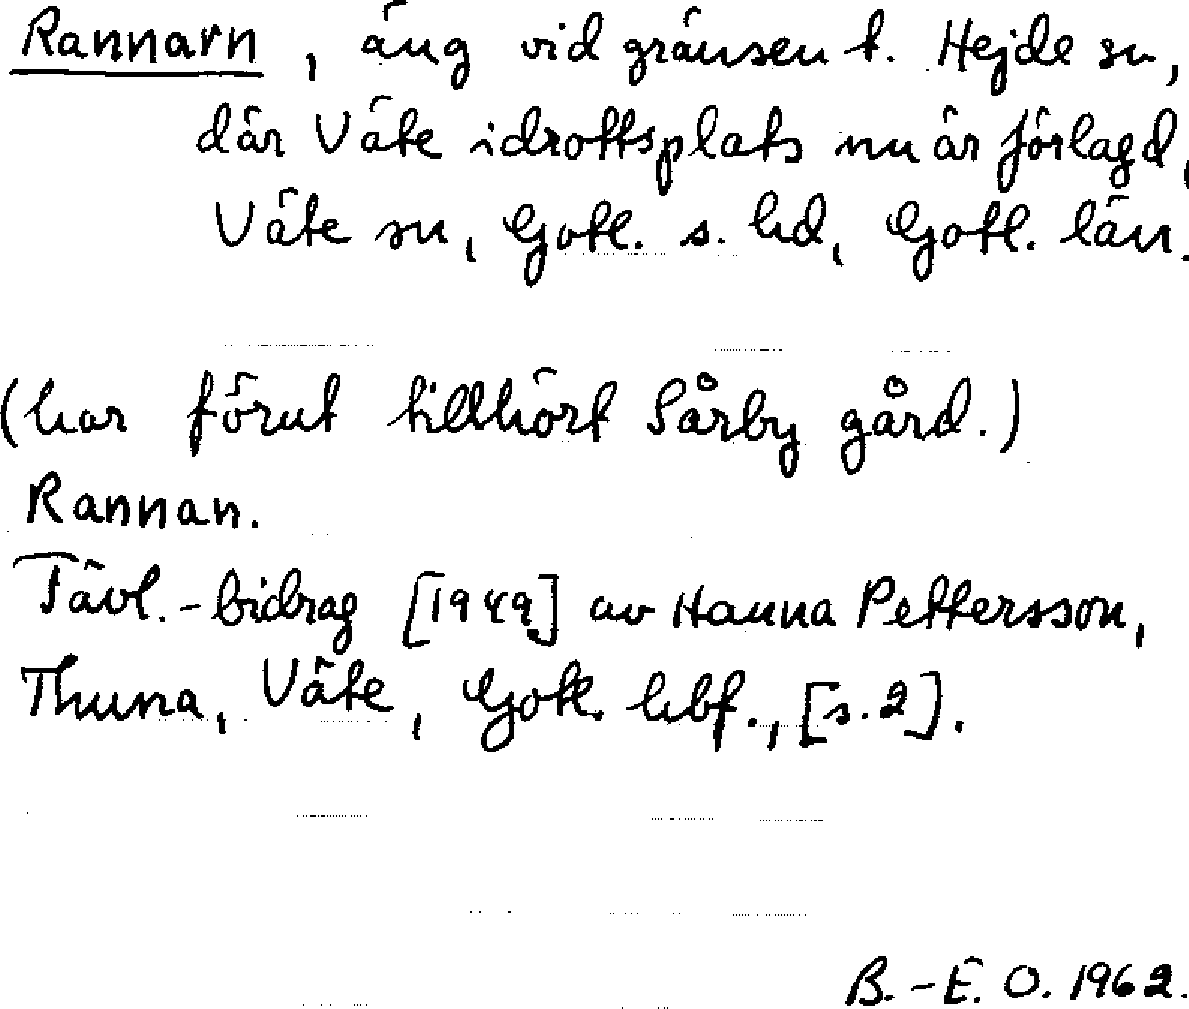 Rannarn, äng vid gränsen t. Hejde sn,
där Väte idrottsplats nu är förlagd,
Väte sn, Gotl. s. hd, Gotl. län.
(har förut tillhört Sårby gård.)
Rannan.
Tävl.-bidrag [1949] av Hanna Pettersson,
Thuna, Väte, Gotl. hbf., [s. 2].
B.-E. O. 1962.